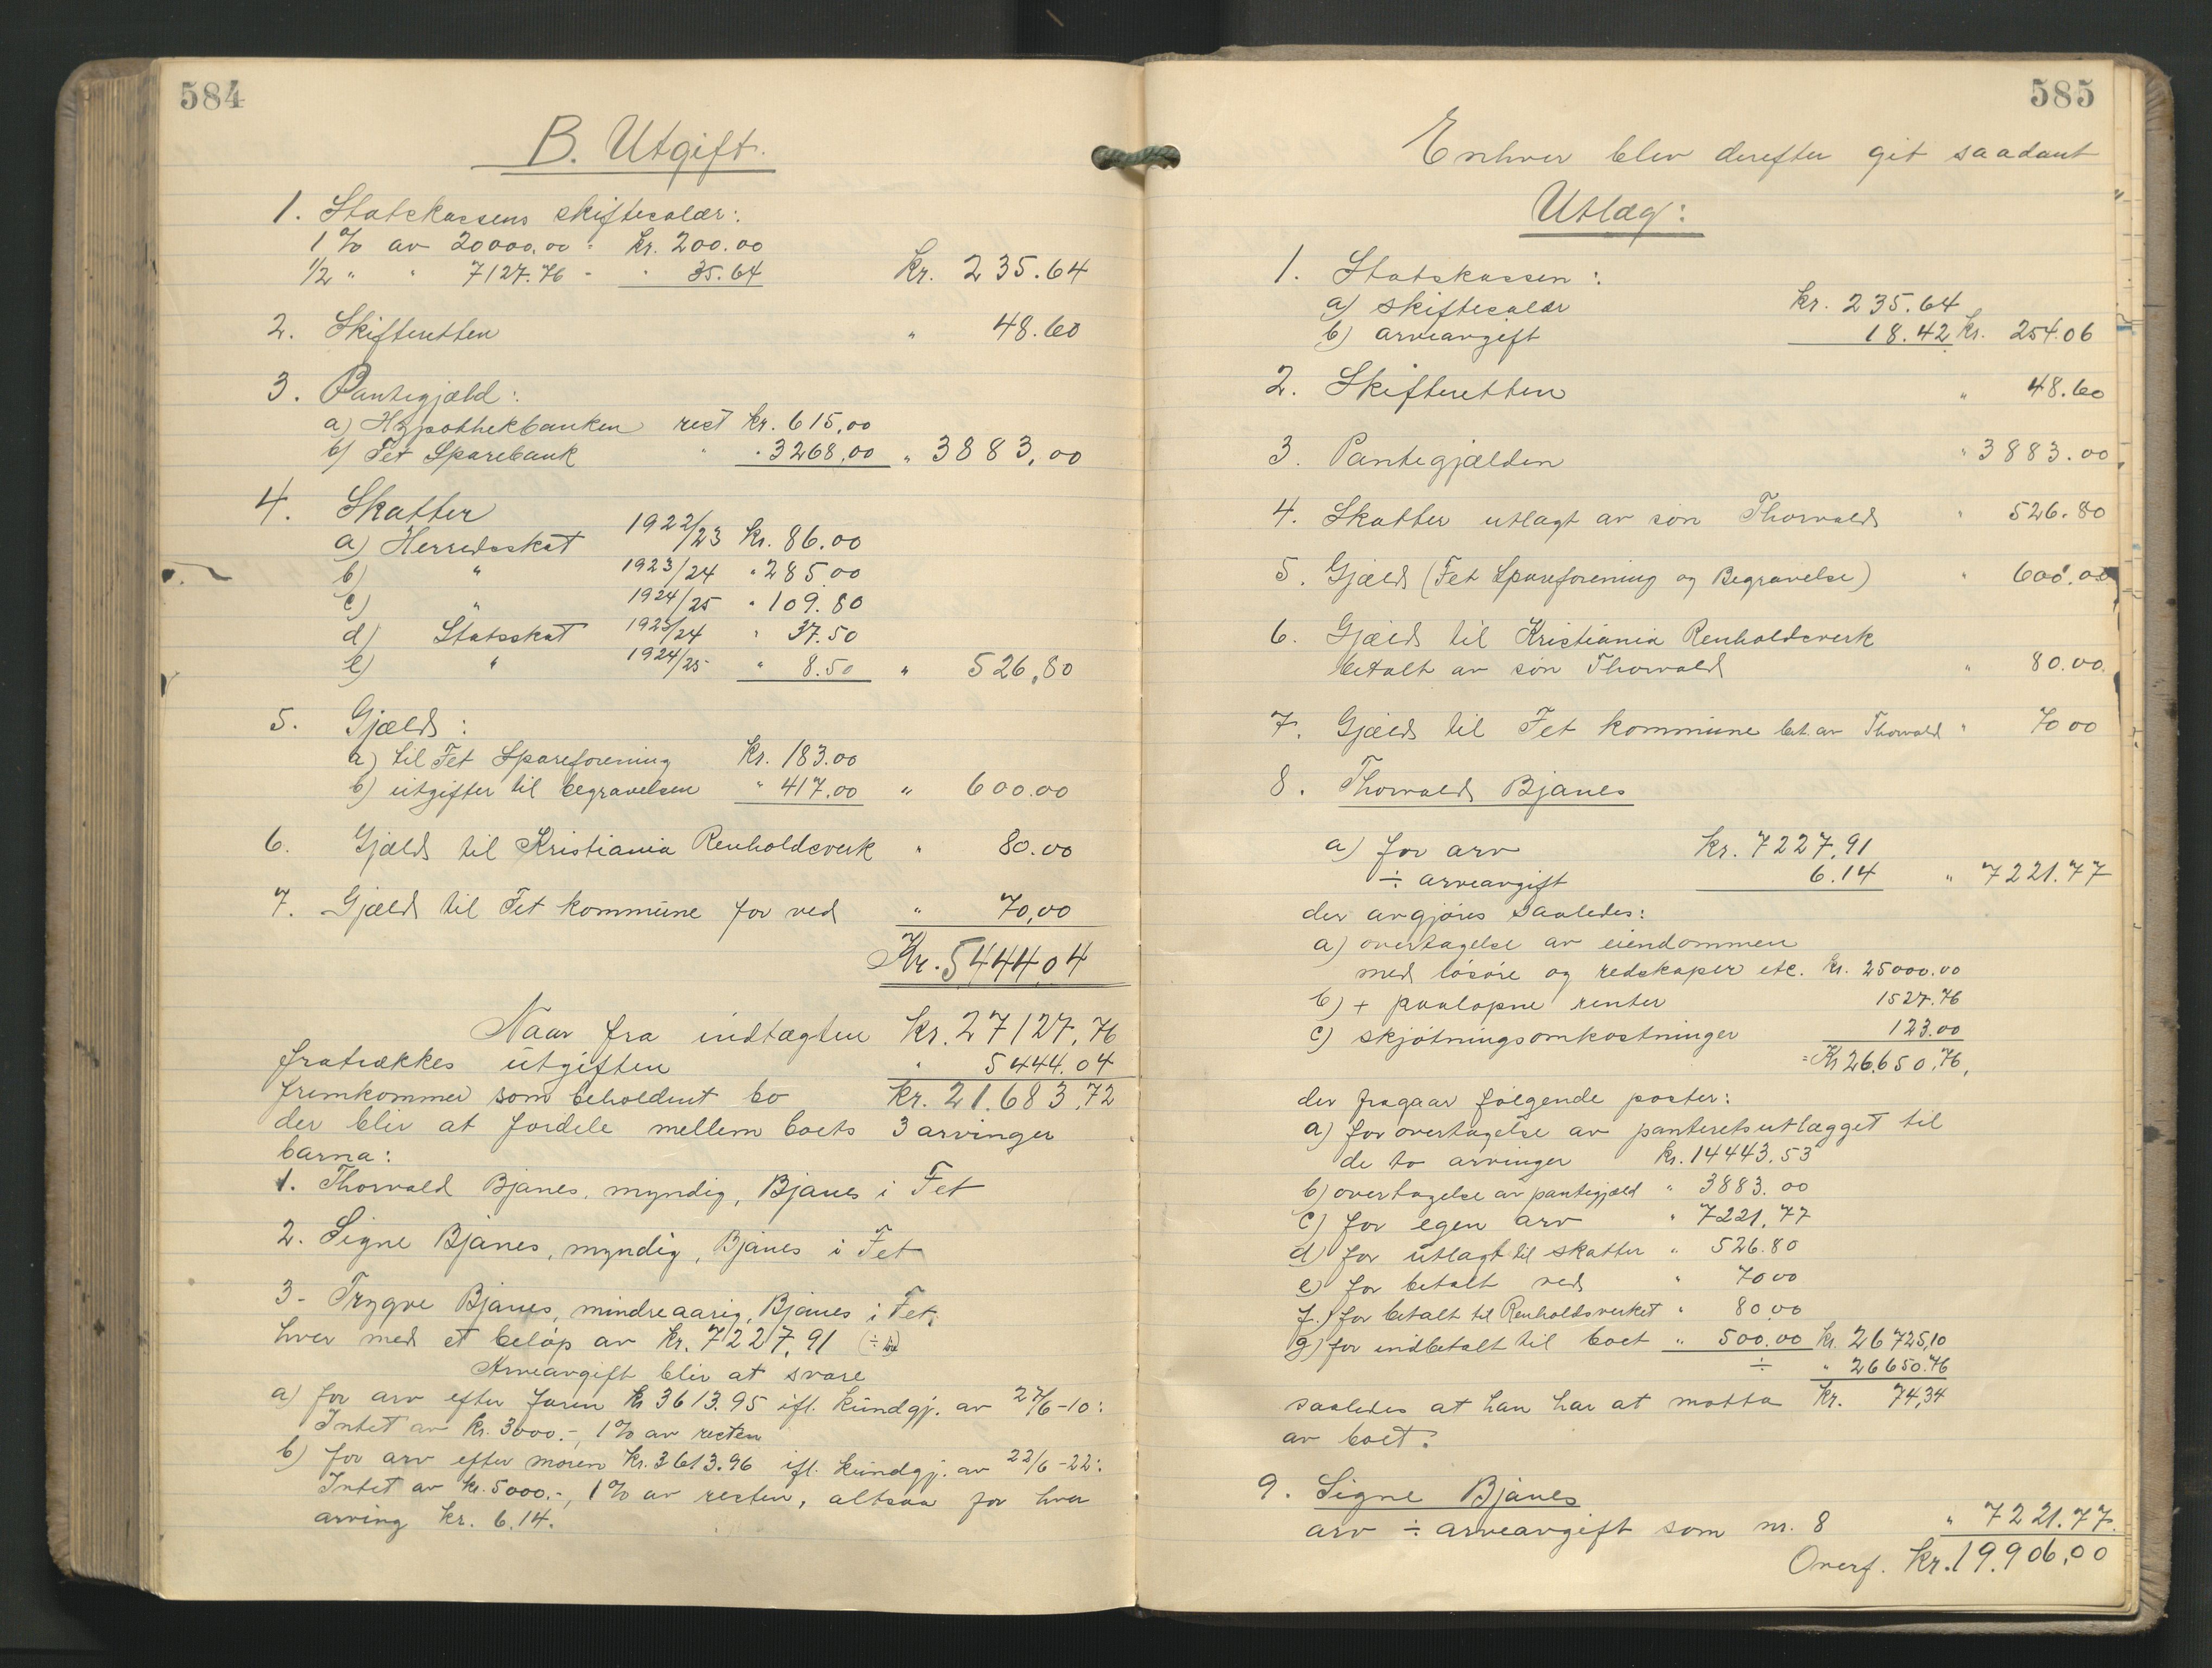 584
B. Utgift.
1. Statskassens skiftesalær:
1 % av 20000.00 = kr. 200.00
1/2 " " 7127.76 - " 35.64 kr. 235.64
2. Skifteretten " 48.60
3. Pantegjæld:
a) Hypothekbanken rest kr. 615,00
b) Fet Sparebank " " 3268,00 " 3883,00
4. Skatter
a) Herredsskat 1922/23 kr. 86.00
b) " 1923/24 " 285.00
c) " 1924/25 " 109.80
d) Statsskat 1923/24 " 37.50
e) " 1924/25 " 8.50 " 526,80
5. Gjæld:
a) til Fet Spareforening kr. 183.00
b) utgifter til begravelsen " 417.00 " 600.00
6. Gjæld til Kristiania Renholdsverk " 80.00
7. Gjæld til Fet kommune for ved " 70,00
Kr. 5444.04
Naar fra indtægten kr. 27127.76
fratrækkes utgiften " 5444.04
fremkommer som beholdent bo kr. 21.683,72
der blir at fordele mellem boets 3 arvinger
barna:
1. Thorvald Bjanes, myndig, Bjanes i Fet
2. Signe Bjanes, myndig, Bjanes i Fet
3- Trygve Bjanes, mindreaarig, Bjanes i Fet,
hver med et beløp av kr. 7227,91
Arveavgift blir at svare
a) for arv efter faren kr 3613.95 ifl. kundgj. av 27/6-10:
Intet av kr. 3000.-, 1% av resten
b) for arv efter moren kr. 3613.96 ifl. kundgj. av 22/6-22:
Intet av kr. 5000.-, 1% av resten, altsaa for hver
arving kr. 6.14.
585
Enhver blev derefter git saadant
Utlæg:
1. Statskassen:
a) skiftesalær kr. 235.64
b) arveavgift 18.42 kr. 254.06
2. Skifteretten " 48.60
3. Pantegjælden " 3883.00
4. Skatter utlagt av søn Thorvald " 526.80
5. Gjæld (Fet Spareforening og Begravelse) " 600.00
6. Gjæld til Kristiania Renholdsverk
betalt av søn Thorvald " 80.00
7. Gjæld til Fet kommune bet. av Thorvald " 70 00
8. Thorvald Bjanes
a) for arv kr. 7227,91
÷ arveavgift 6.14 " 7221.77
der avgjøres saaledes:
a) overtagelse av eiendommen
med løsøre og redskaper etc. kr. 25000.00
b) + paaløpne renter 1527.76
c) skjøtningsomkostninger 123.00
= Kr 26.650,76,
der fragaar følgende poster:
a) for overtagelse av panteretsutlægget til
de to arvinger kr. 14443.53
b) overtagelse av pantegjæld " 3883.00
c) for egen arv " 7221,77
d) for utlagt til skatter " 526.80
e) for betalt ved " 70 00
f.) for betalt til Renholdsverket " 80.00
g) for indbetalt til boet " 500.00 kr. 26725,10
÷ " 26650.76
saaledes at han har at motta kr. 74,34
av boet.
9. Signe Bjanes
arv ÷ arveavgift som nr. 8 " 7221.77
Overf. kr. 19.906,00